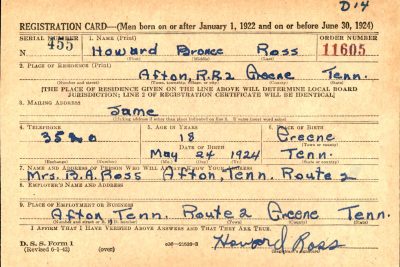 D14
REGISTRATION CARD—(Men born on or after January 1, 1922 and on or before June 30, 1924)
SERIAL NUMBER 1. NAME (Print) ORDER NUMBER
N 455 Howard Ross 11605
(First) (Middle) (Last)
2. PLACE OF RESIDENCE (Print)
Afton, R.R.2 Greene Tenn.
(Number and street) (Town, township, village, or city) (County) (State)
[THE PLACE OF RESIDENCE GIVEN ON THE LINE ABOVE WILL DETERMINE LOCAL BOARD
JURISDICTION; LINE 2 OF REGISTRATION CERTIFICATE WILL BE IDENTICAL]
3. MAILING ADDRESS
Same
[Mailing address if other than place indicated on line 2. If same insert word same]
4. TELEPHONE 5. AGE IN YEARS 6. PLACE OF BIRTH
18 Greene
DATE OF BIRTH
May 24 1924 Tenn.
(Exchange) (Number) (Mo.) (Day) (Yr.) (State or country)
7. NAME AND ADDRESS OF PERSON WHO WILL ALWAYS KNOW YOUR ADDRESS
Mrs. B.A. Ross Afton, Tenn. Route 2
8. EMPLOYER'S NAME AND ADDRESS
9. PLACE OF EMPLOYMENT OR BUSINESS
Afton, Tenn. Route 2 Greene Tenn.
(Number and street or R. F. D. number) (Town) (County) (State)
I AFFIRM THAT I HAVE VERIFIED ABOVE ANSWERS AND THAT THEY ARE TRUE.
D. S. S. Form 1
(Revised 6-9-42) (over) Howard Ross